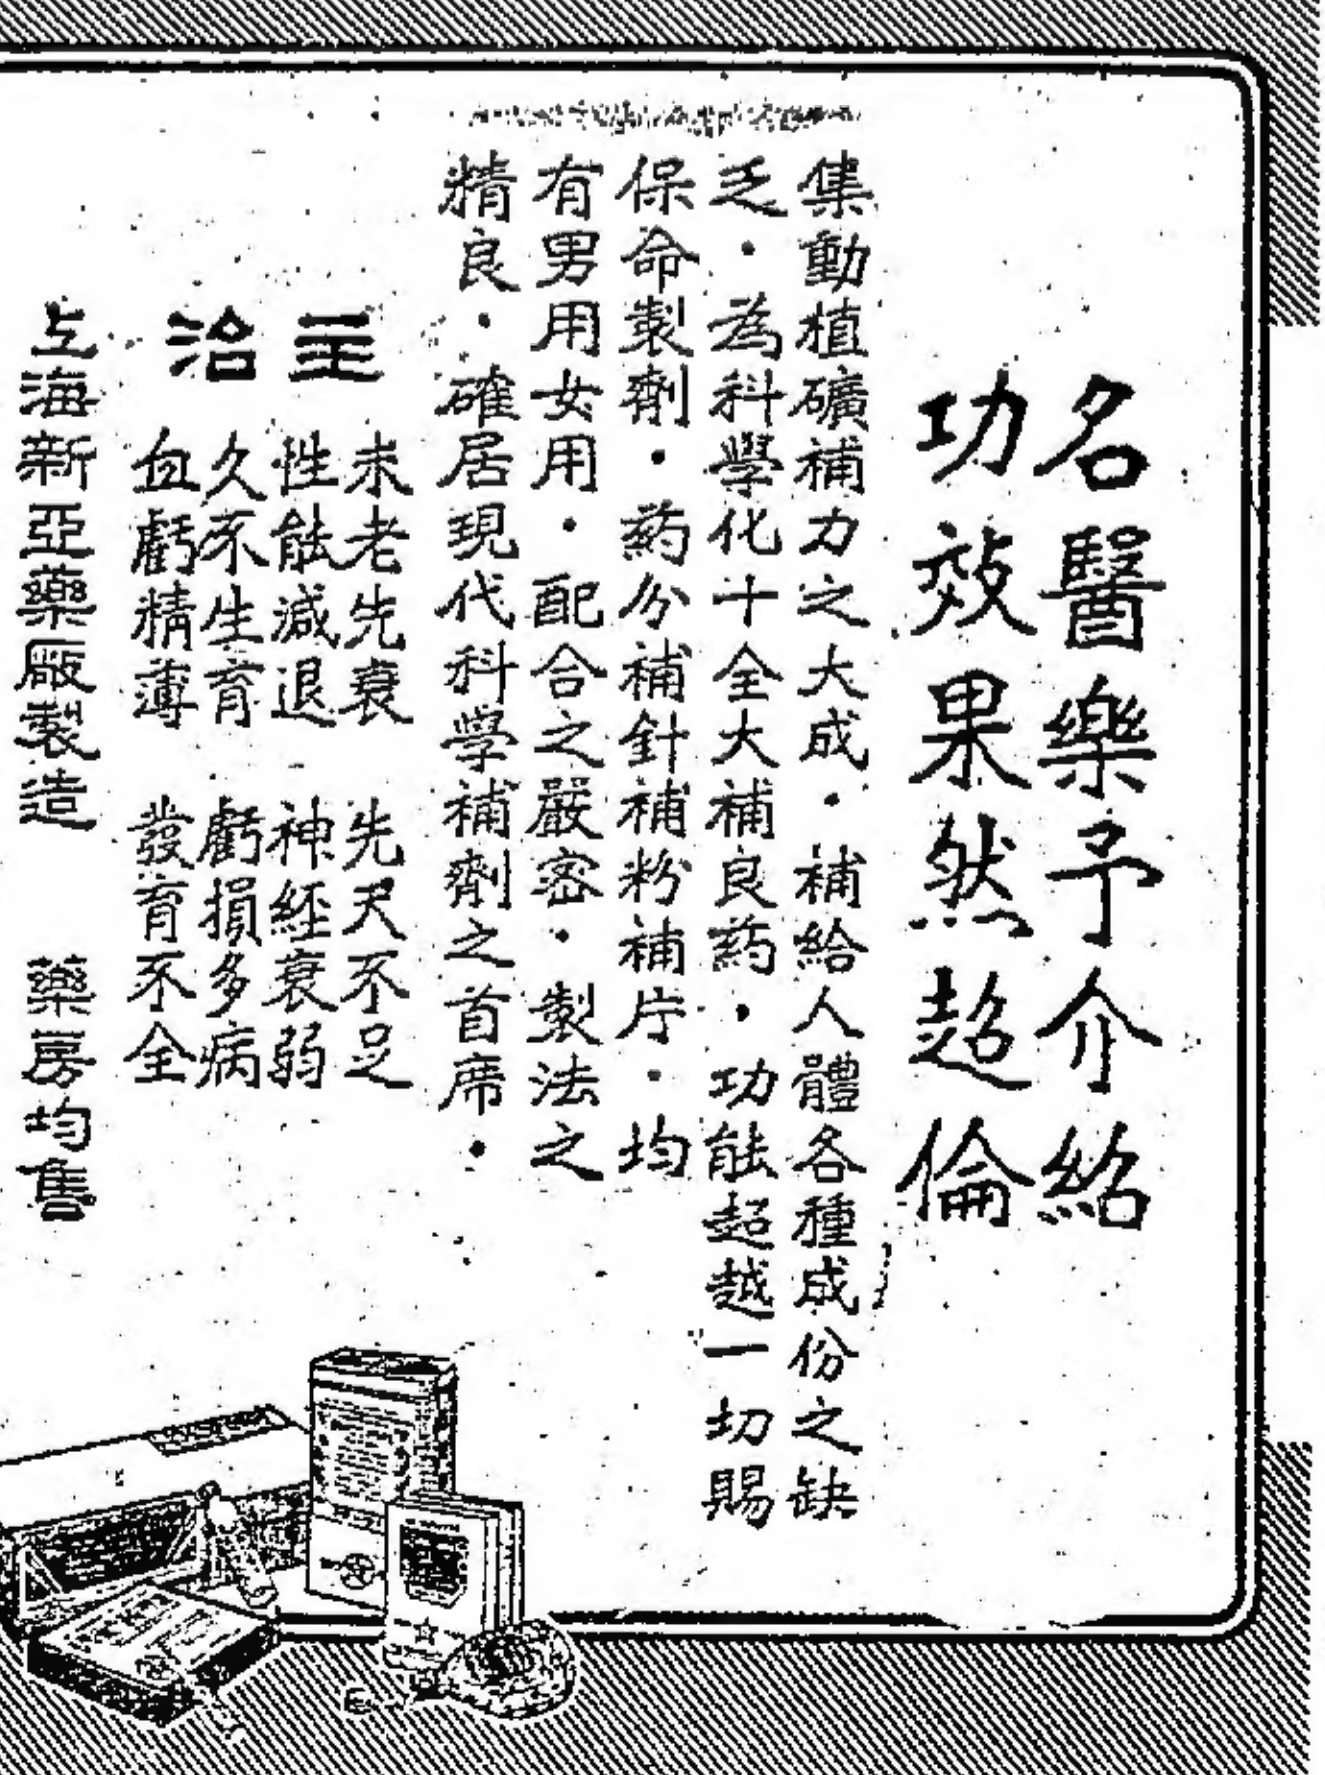 名醫樂予介紹
功效果然超倫
集動植礦補力之大成・補給人體各種成份之缺
乏・為科學化十全大補良葯・功能超越一切賜
保命製劑・葯分補針補粉補片・均
有男用女用・配合之嚴密・製法之
精良・確居現代科學補劑之首席・
主治
未老先衰 先天不足
性能減退 神經衰弱
久不生育 虧損多病
血虧精薄 發育不全
上海新亞藥廠製造 藥房均售